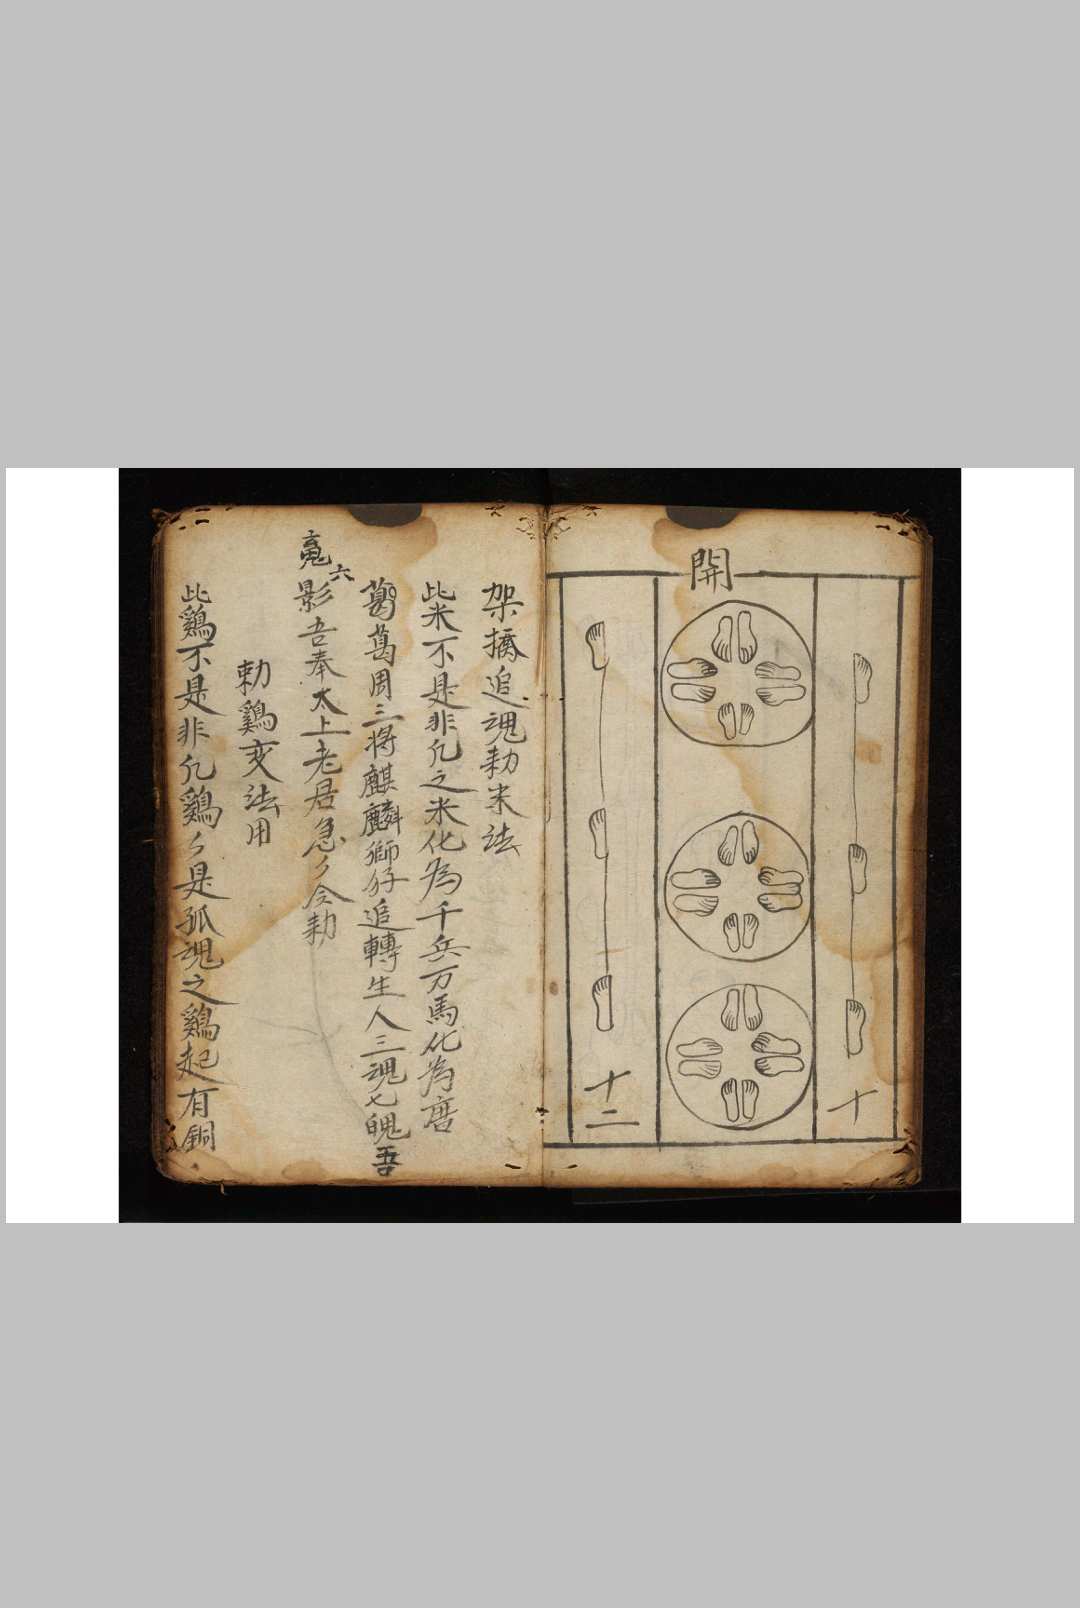 開
十
十二
架橋追魂勅米法
此米不是非凢之米化為千兵万馬化為唐
葛周三将麒麟獅仔追轉生人三魂七魄吾
六
影吾奉太上老君急々令勅
勅鷄亥法用
此鷄不是非凢鷄々是孤魂之鷄起有銅